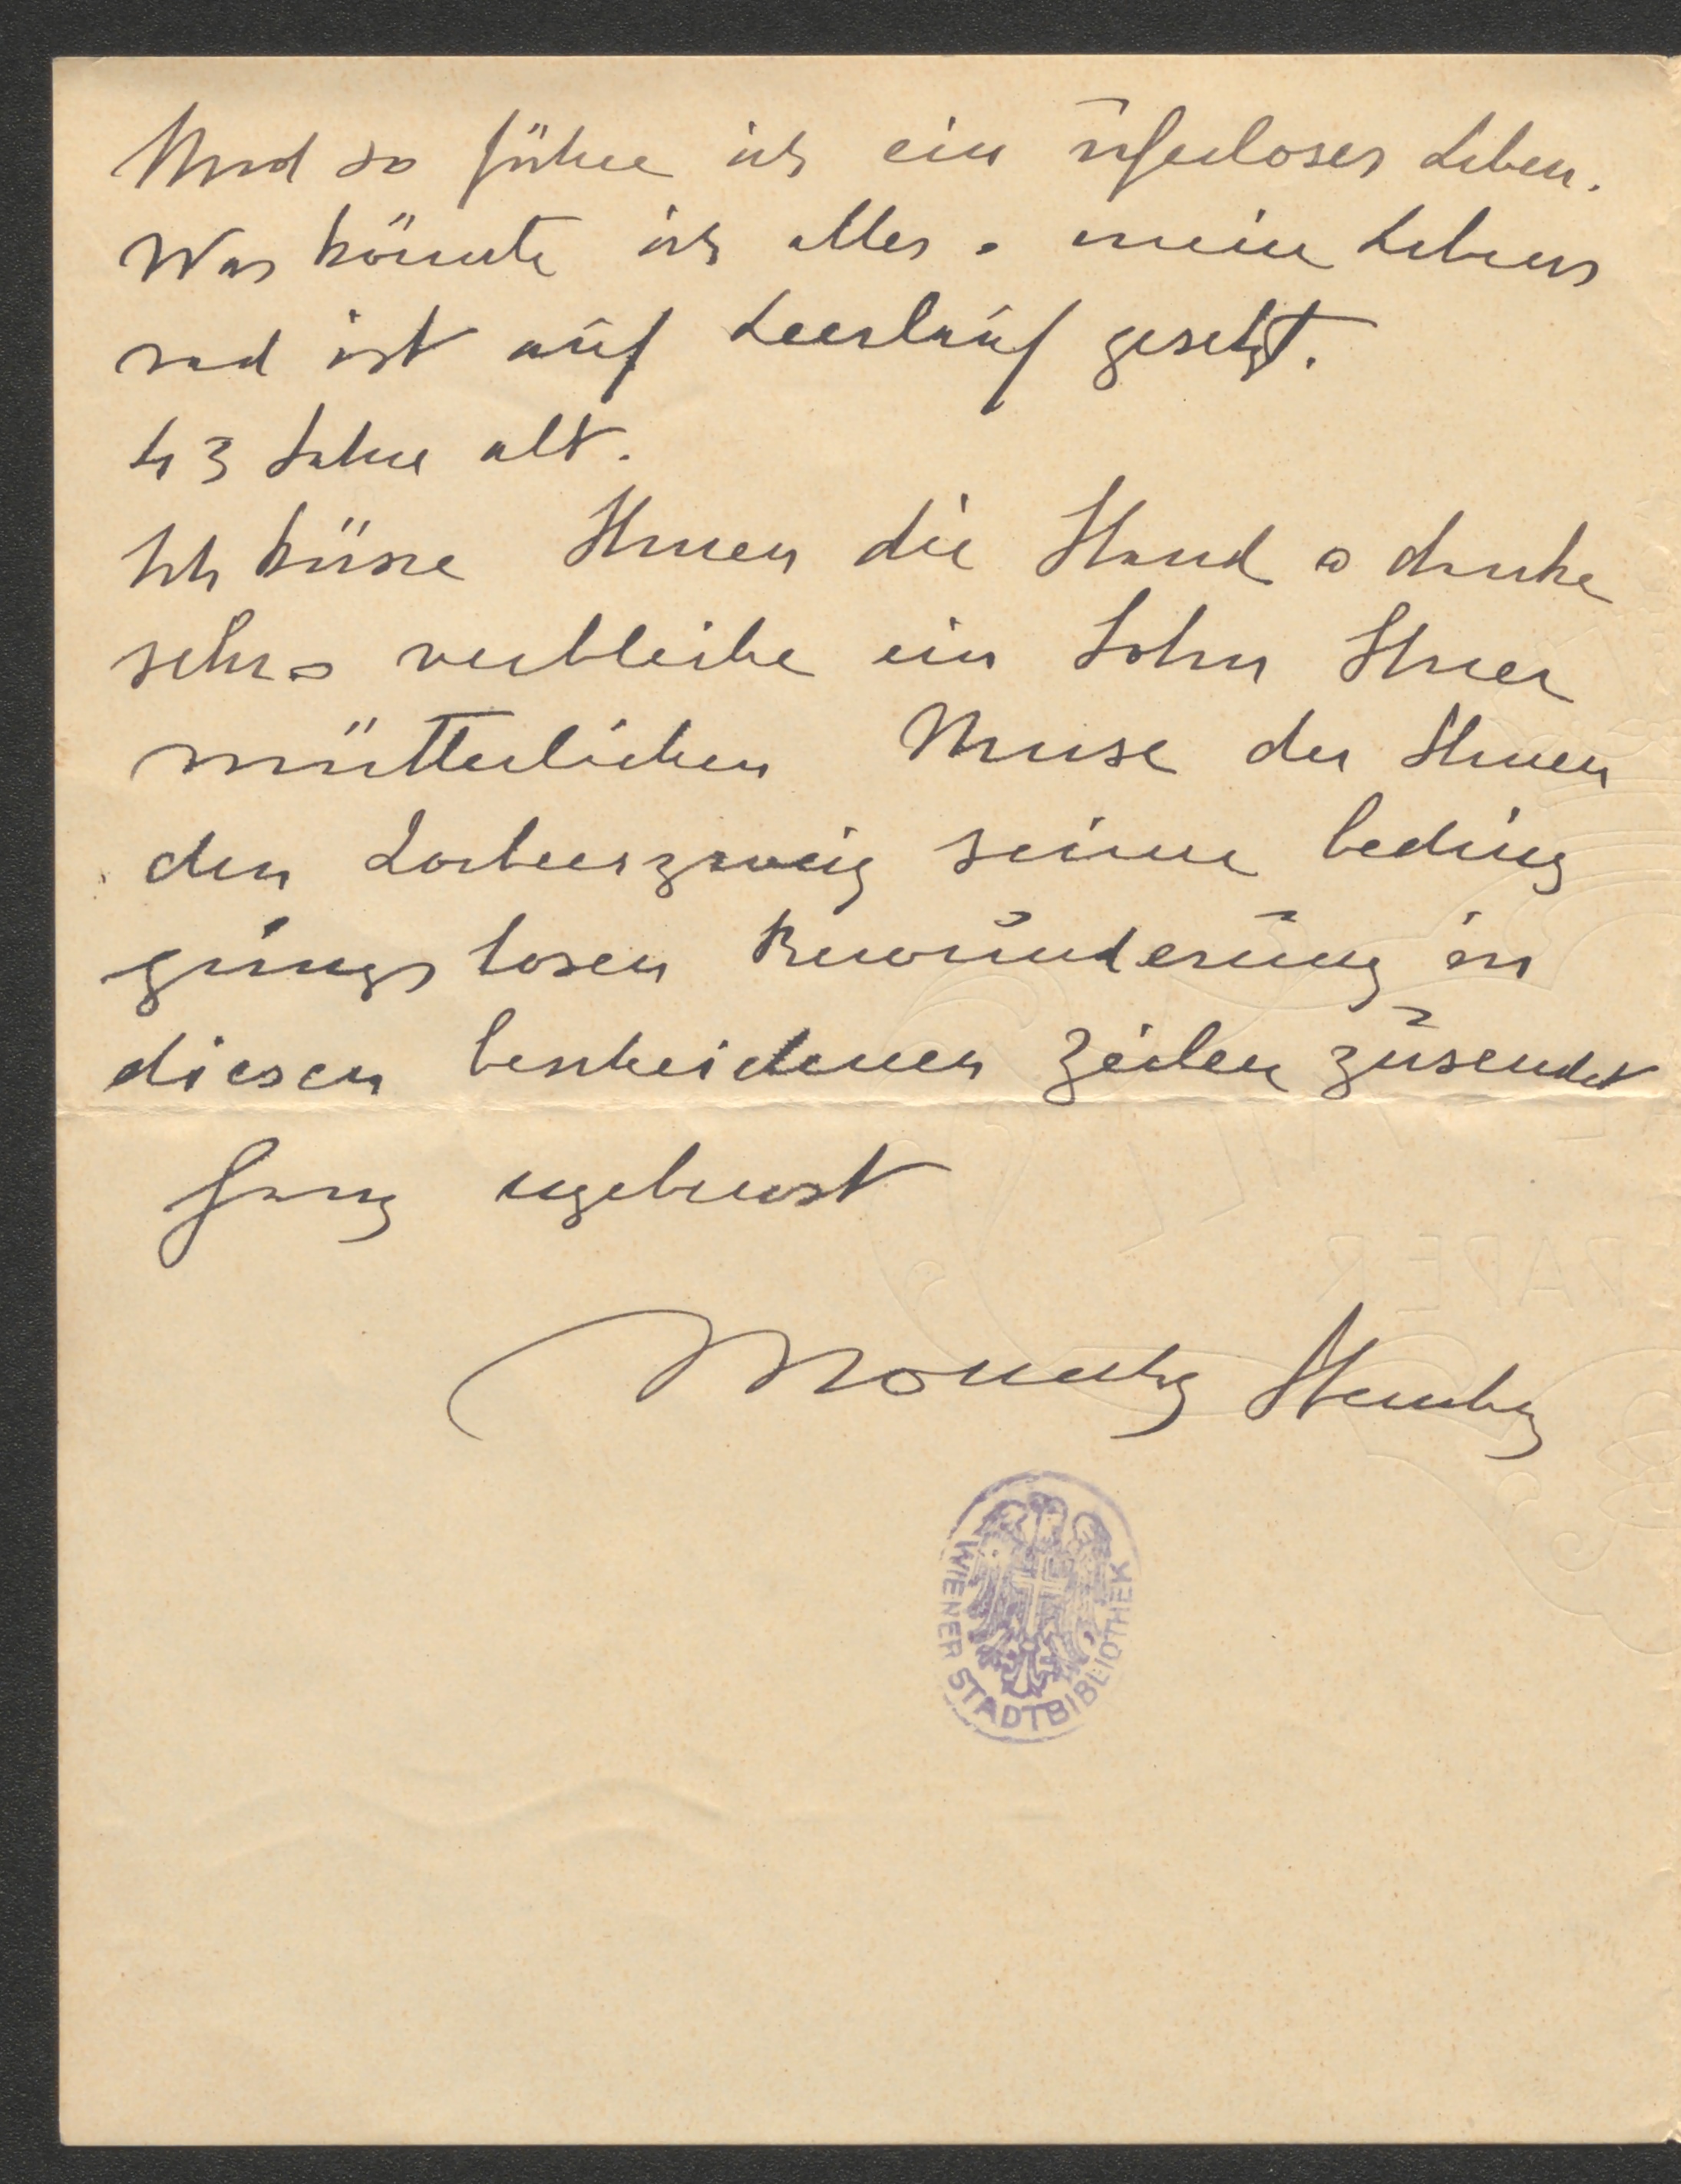 Und so führe ich ein uferloses Leben.
Was könnte ich alles. meine Lebens
rad ist auf Leerlauf gesetzt.
43 Jahre alt.
Ich küsse Ihnen die Hand & danke
sehr & verbleibe ein Sohn Ihrer
mütterlichen Muse der Ihnen
den Lorbeerzweig seiner beding
gungslosen Bewunderung in
diesen bescheidenen Zeilen zusendet
Ganz ergebenst
WIENER STADTBIBLIOTHEK
PAPER